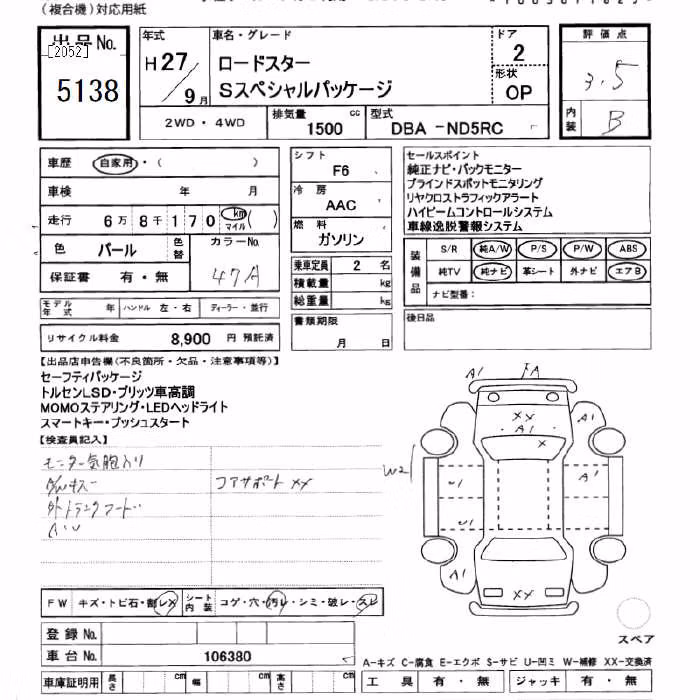 (複合機)対応用紙
出品No.
[2052]
5138
年式
H 27/9月
車名・グレード
ロードスター
Sスペシャルパッケージ
ドア
2
形状
OP
評価点
3.5
内装
B
2WD・4WD
排気量
1500 cc
型式
DBA -ND5RC
車歴 自家用・( )
車検 年 月
走行 6万8千170 km マイル ( )
色 パール 色替 カラーNo.
47A
保証書 有・無
シフト
F6
冷房
AAC
燃料
ガソリン
乗車定員 2 名
積載量 kg
総重量 kg
セールスポイント
純正ナビ・バックモニター
ブラインドスポットモニタリング
リヤクロストラフィックアラート
ハイビームコントロールシステム
車線逸脱警報システム
装備品
S/R 純A/W P/S P/W ABS
純TV 純ナビ 革シート 外ナビ エアB
ナビ型番:
モデル年式 年 ハンドル 左・右 ディーラー・並行
リサイクル料金 8,900 円 預託済
書類期限
月 日
後日品
【出品店申告欄(不良箇所・欠品・注意事項等)】
セーフティパッケージ
トルセンLSD・ブリッツ車高調
MOMOステアリング・LEDヘッドライト
スマートキー・プッシュスタート
【検査員記入】
モニター気胞入り
コアサポートXX
A1
A
XX
A1
X
A1
A1
W2
U1
A1
U1
A1
A1
XX
FW キズ・トビ石・割レX シート内装 コゲ・穴・汚レ・シミ・破レ・スレ
登録No.
車台No. 106380
スペア
A-キズ C-腐食 E-エクボ S-サビ U-凹ミ W-補修 XX-交換済
車庫証明用 長さ cm 幅 cm 高さ cm
工具 有・無 ジャッキ 有・無